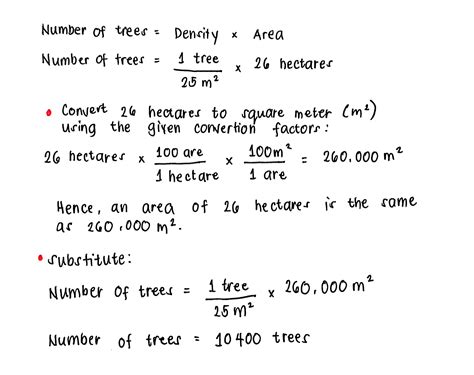 Number of trees = Density × Area
Number of trees = 1 tree / 25 m² × 26 hectares
• Convert 26 hectares to square meter (m²)
using the given convertion factors:
26 hectares × 100 are / 1 hectare × 100m² / 1 are = 260,000 m²
Hence, an area of 26 hectares is the same
as 260,000 m².
• substitute:
Number of trees = 1 tree / 25 m² × 260,000 m²
Number of trees = 10400 trees